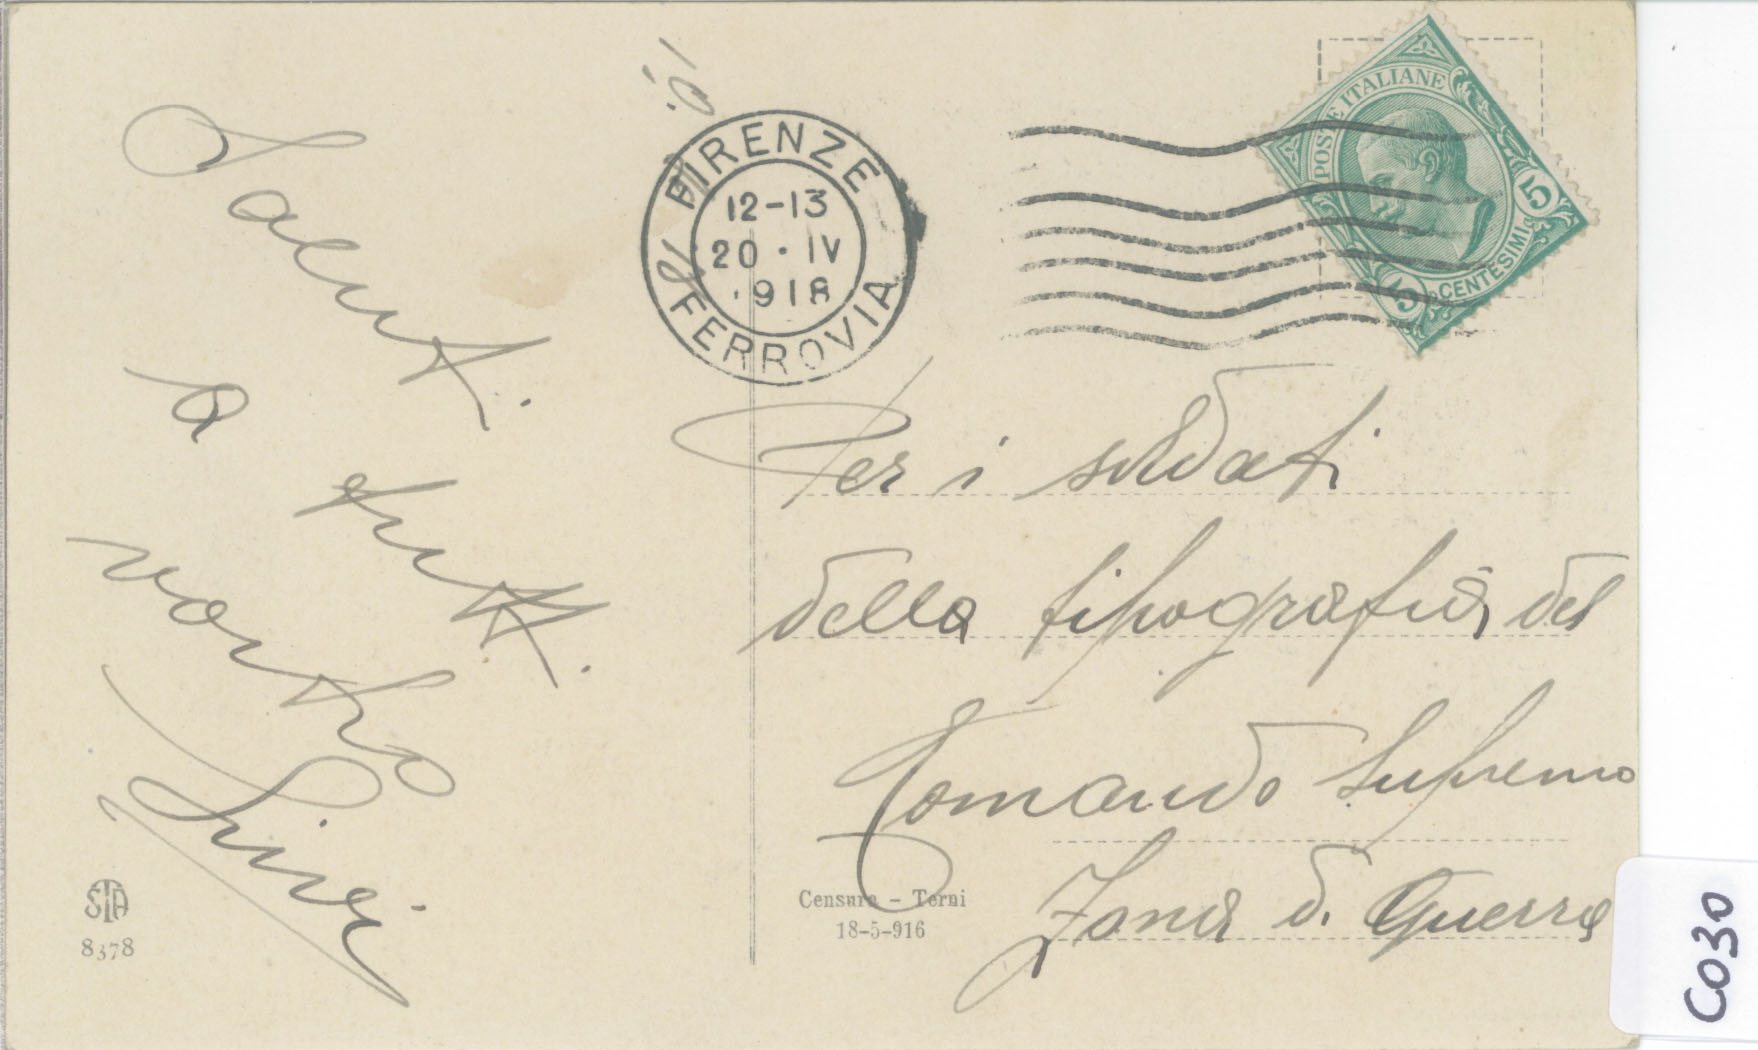 Saluti
a tutti
vostro
Luigi
10
FIRENZE
12-13
20·IV
918
FERROVIA
POSTE ITALIANE
5
CENTESIMI
5
Per i soldati
della tipografia del
Comando Supremo
Zona di Guerra
Censura - Terni
18-5-916
STA
8378
C030